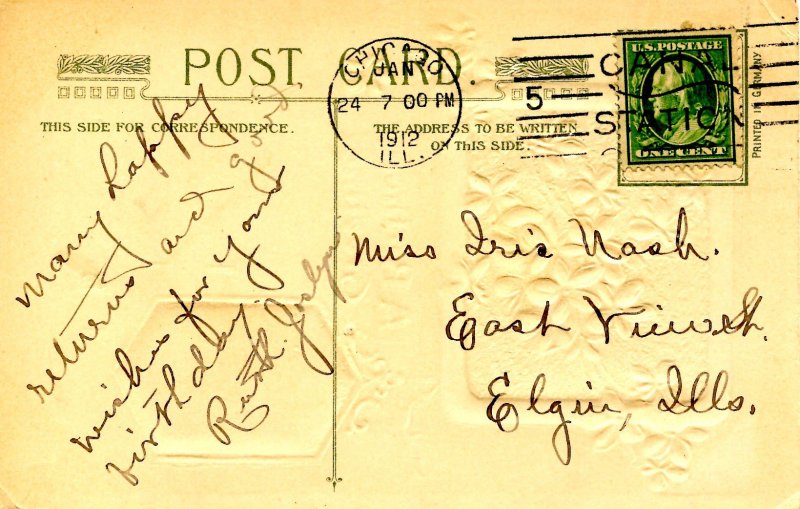 POST CARD.
THIS SIDE FOR CORRESPONDENCE.
THE ADDRESS TO BE WRITTEN
ON THIS SIDE.
CHICAGO
JAN
24 7 00 PM
1912
ILL.
5
CANAL
STATION
U.S. POSTAGE
ONE CENT
PRINTED IN GERMANY
Many happy
returns and good
wishes for your
birthday
Ruth Joslyn.
Miss Iris Nash.
East View St.
Elgin, Ills.